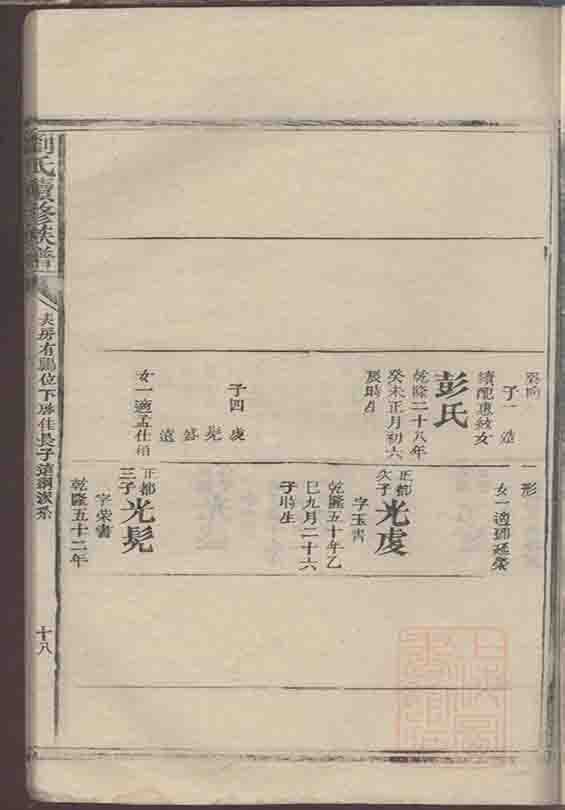 癸向
續配惠敘女
子一 造
彭氏
乾隆二十八年
癸未正月初六
辰時生
子四 虔
髡
女一適孟仕
一形
女一適 廷榮
正都
次子
光虔
字玉書
乾隆五十年乙
巳九月二十六
子時生
正都
三子
光髡
字榮書
乾隆五十二年
劉氏續修族譜
長房有 位下 佳長子造 派系
十八